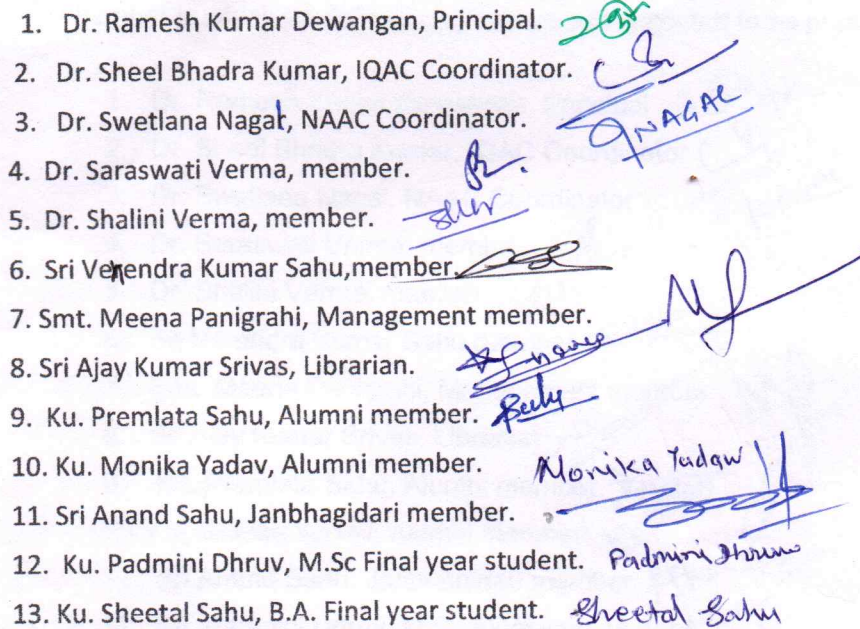 1. Dr. Ramesh Kumar Dewangan, Principal.
2. Dr. Sheel Bhadra Kumar, IQAC Coordinator.
3. Dr. Swetlana Nagal, NAAC Coordinator. NAGAL
4. Dr. Saraswati Verma, member.
5. Dr. Shalini Verma, member.
6. Sri Venendra Kumar Sahu,member.
7. Smt. Meena Panigrahi, Management member.
8. Sri Ajay Kumar Srivas, Librarian.
9. Ku. Premlata Sahu, Alumni member.
10. Ku. Monika Yadav, Alumni member. Monika Yadaw
11. Sri Anand Sahu, Janbhagidari member.
12. Ku. Padmini Dhruv, M.Sc Final year student. Padmini Dhruw
13. Ku. Sheetal Sahu, B.A. Final year student. Sheetal Sahu